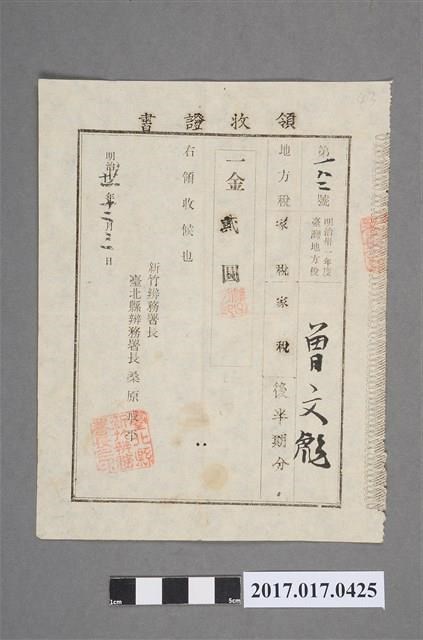 領收證書
第一六二號
明治卅一年度
臺灣地方稅
曾文彪
地方稅家稅家稅後半期分
一金貳圓
右領收候也
明治 年十二月 日
新竹辨務署長
臺北縣辨務署長桑原
43
1cm
5cm
2017.017.0425